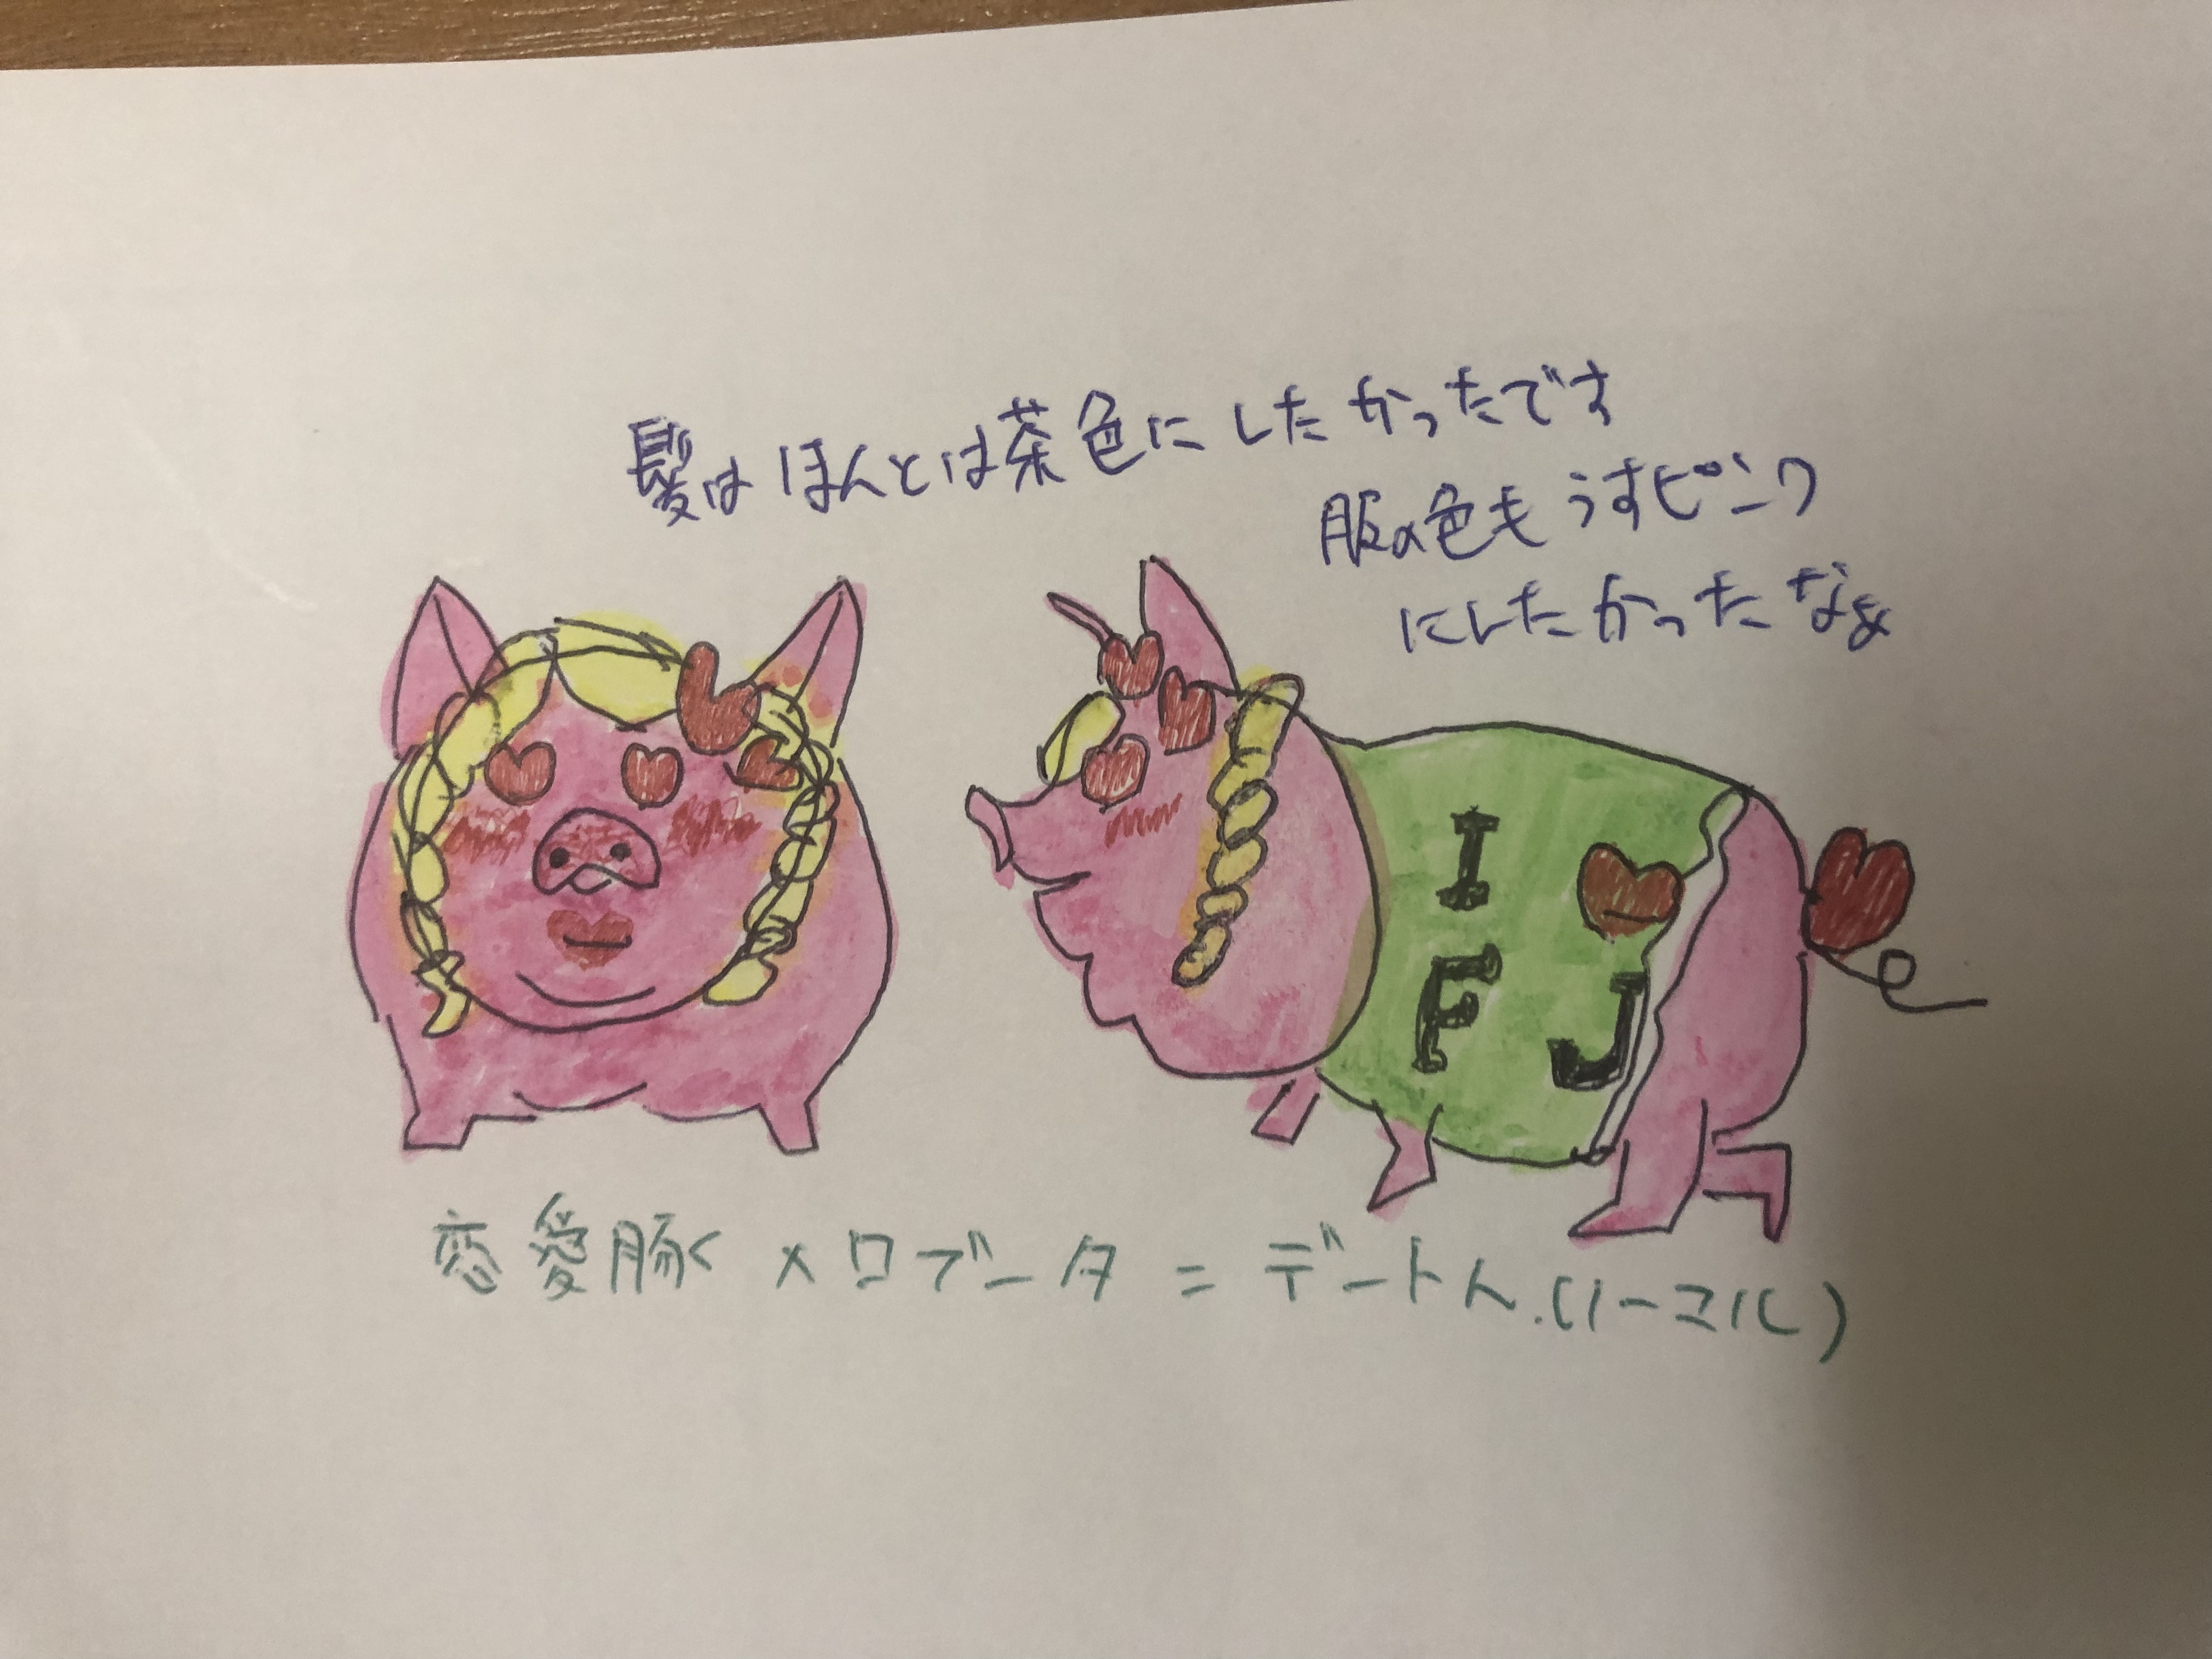 髪はほんとは茶色にしたかったです
服の色もうすピンク
にしたかったなぁ
I ♥
F J
恋愛豚く×ロブータ=デートん.(ノーマル)